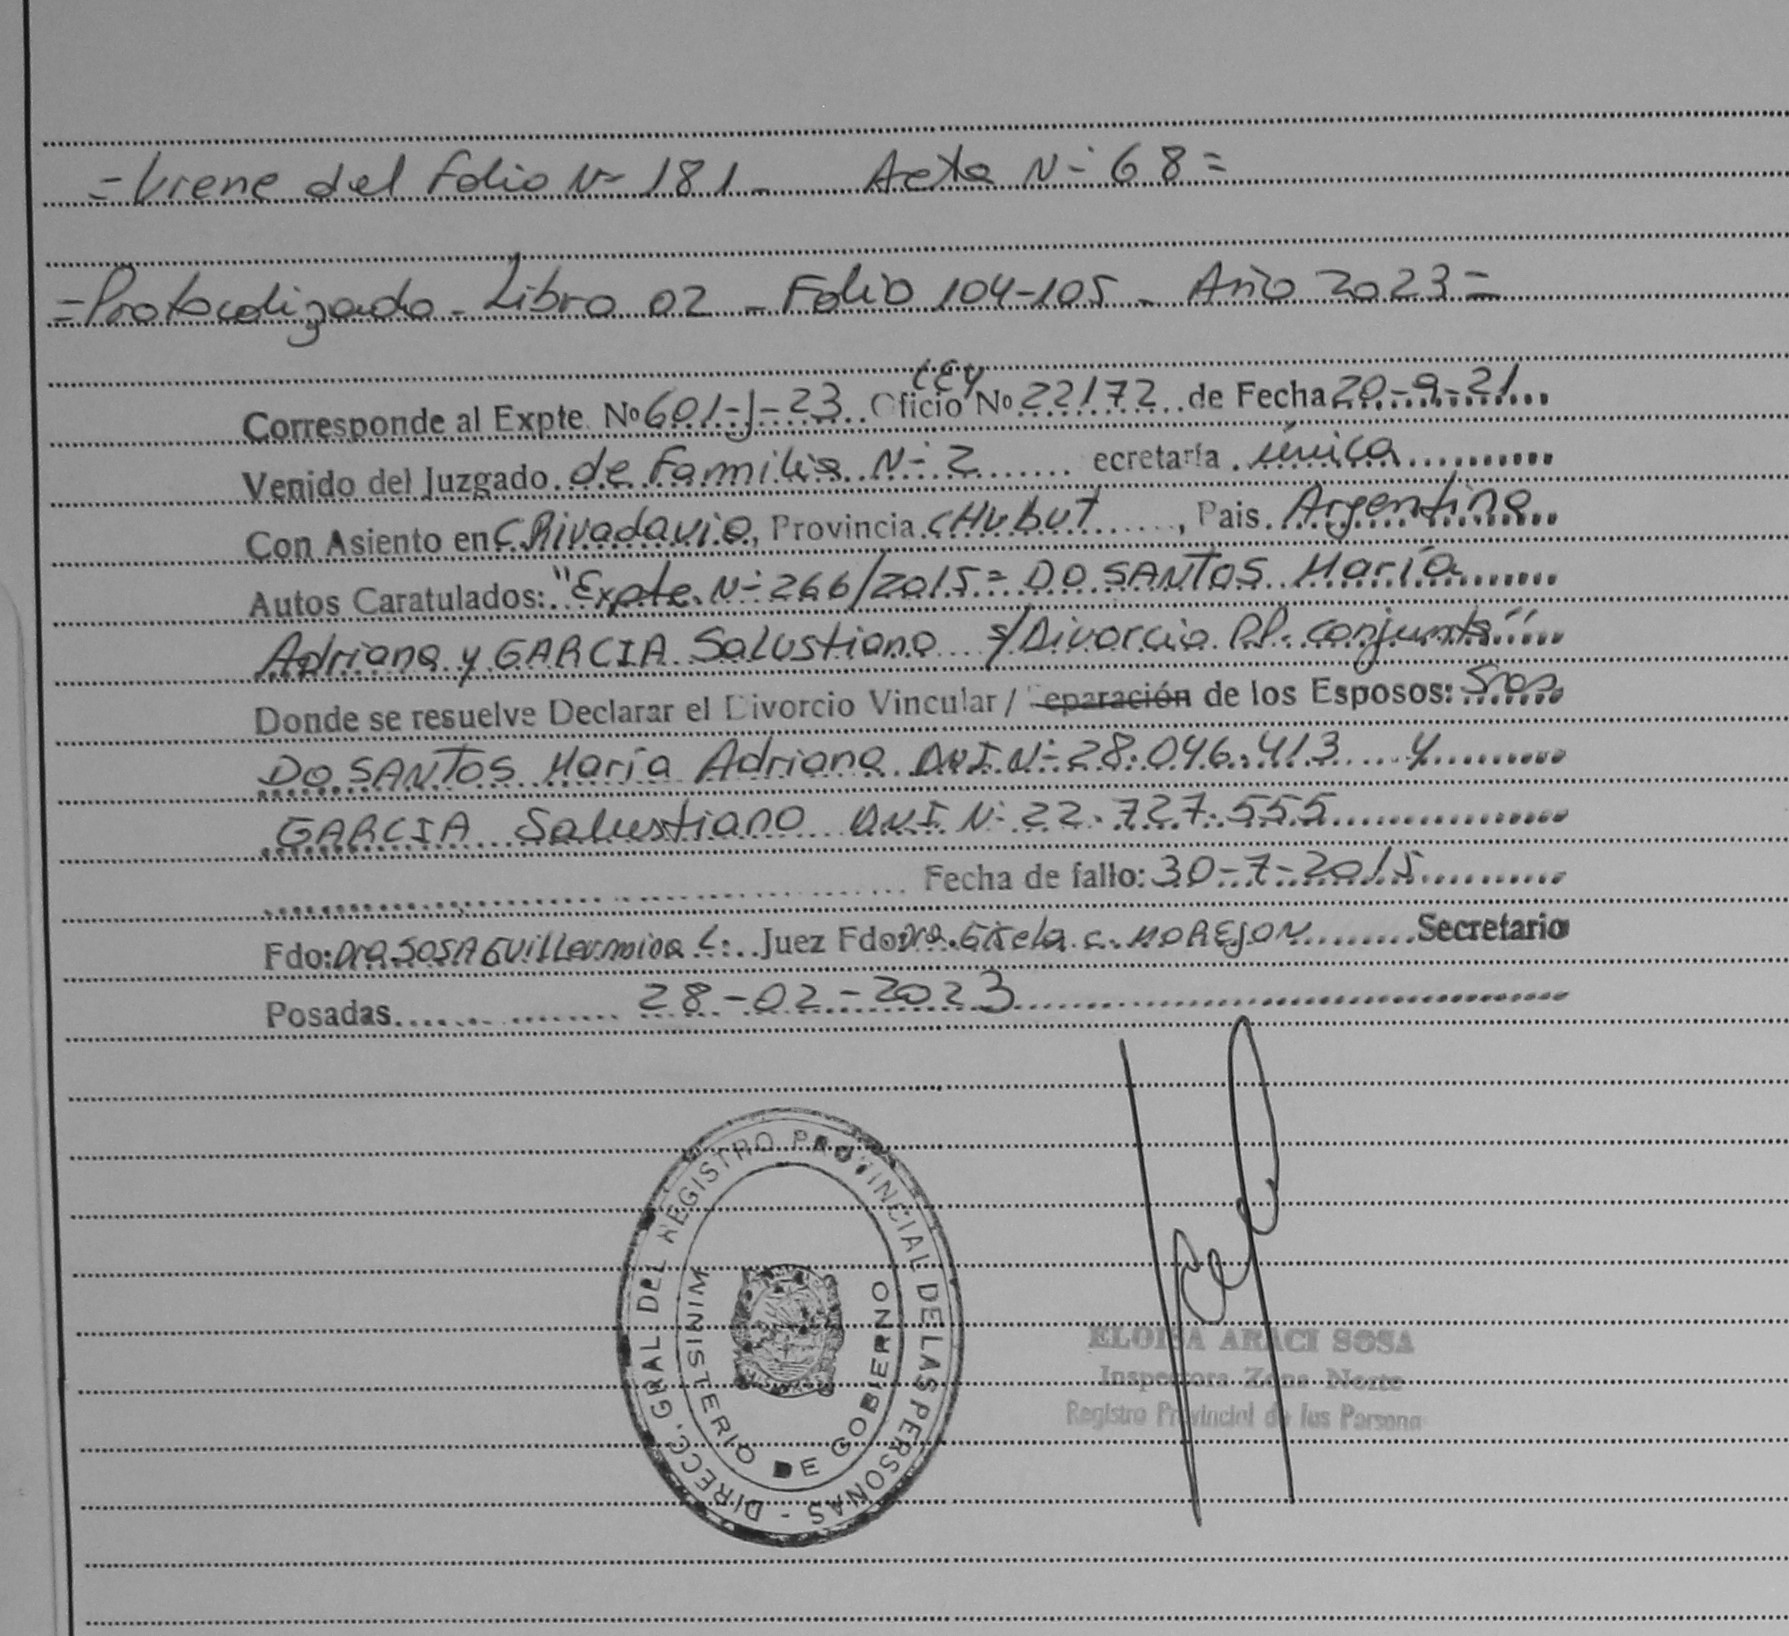 =Viene del Folio Nº 181- Acta Nº 68=
=Protocolizado - Libro 02 - Folio 104-105 - Año 2023=
LEY
Corresponde al Expte. Nº 601-J-23.. Oficio Nº 22172...de Fecha 20-9-21...
Venido del Juzgado. de Familia Nº 2....... ecretaría .única..........
Con Asiento en C. Rivadavia, Provincia CHubut......, Pais. Argentina
Autos Caratulados: "Expte. Nº 266/2015= DO SANTOS María.......
Adriana y GARCIA Salustiano s/Divorcio P.P. conjunta"....
Donde se resuelve Declarar el Divorcio Vincular / eparación de los Esposos: Sres
DO SANTOS María Adriana DNI Nº 28.046.413 .... y.........
GARCIA Salustiano DNI Nº 22.727.555................
Fecha de fallo: 30-7-2015..........
Fdo: Dra. SOSA GUILLermina L... Juez Fdo Dra. Gisela C. MOREJON........Secretario
Posadas.................28-02-2023...............................
DIRECC. GRAL DEL REGISTRO PROVINCIAL DE LAS PERSONAS -
MINISTERIO DE GOBIERNO
ELOISA ARACI SOSA
Inspectora Zona Norte
Registro Provincial de las Persona